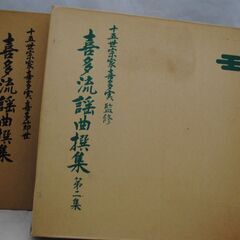 十五世宗家・喜多実監修
喜多流謡曲撰集 第二集
十五世宗家・喜多実・喜多節世
喜多流謡曲撰集